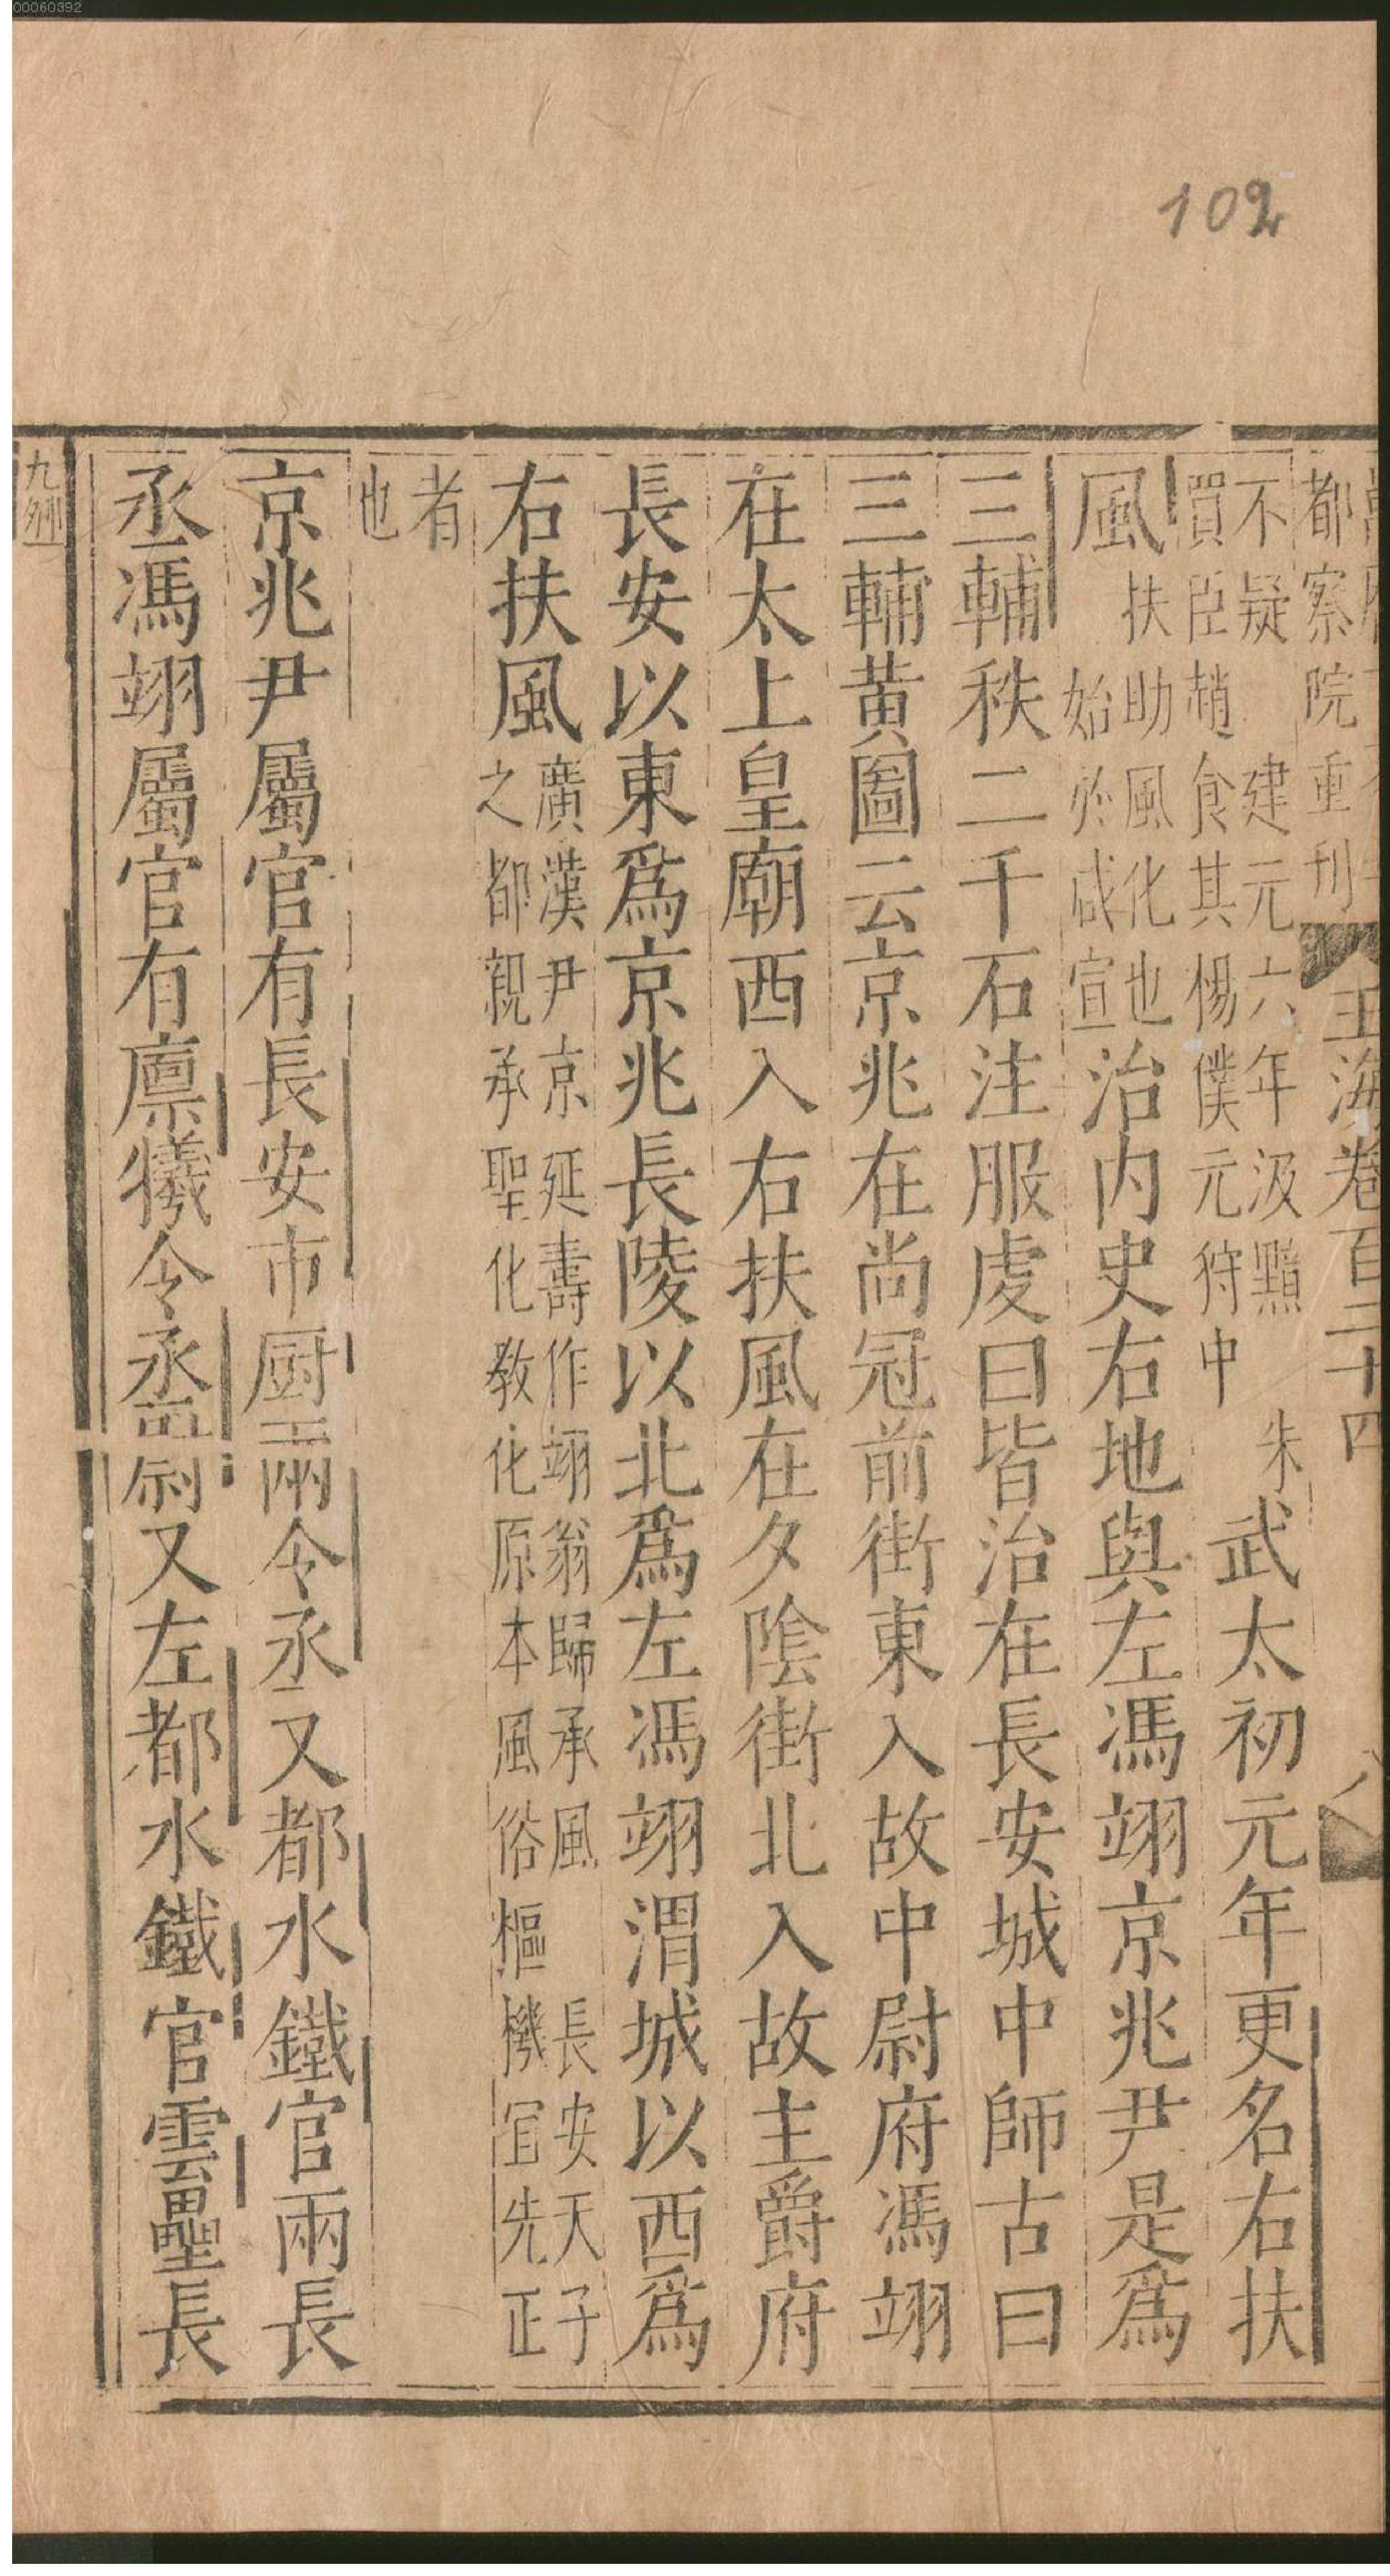 00060392
102
都察院重刊
玉海卷百二十四
八
不疑 建元六年汲黯 朱
買臣趙食其楊僕元狩中
武太初元年更名右扶
風
扶助風化也
始必咸宣
治内史右地與左馮翊京兆尹是爲
三輔秩二千石注服虔曰皆治在長安城中師古曰
三輔黄圖云京兆在尚冠前街東入故中尉府馮翊
在太上皇廟西入右扶風在夕陰街北入故主爵府
長安以東爲京兆長陵以北爲左馮翊渭城以西爲
右扶風
廣漢尹京延壽作翊翁歸承風 長安天子
之都親承聖化敎化原本風俗樞機宐先正
者
也
京兆尹屬官有長安市厨兩令丞又都水鐵官兩長
丞馮翊屬官有廪犧令丞尉又左都水鐵官雲壘長
九卿